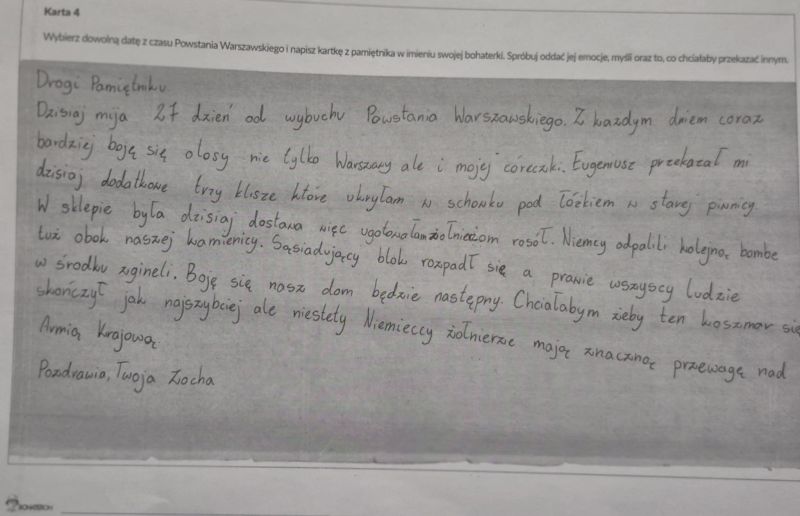 Karta 4
Wybierz dowolną datę z czasu Powstania Warszawskiego i napisz kartkę z pamiętnika w imieniu swojej bohaterki. Spróbuj oddać jej emocje, myśli oraz to, co chciałaby przekazać innym.
Drogi Pamiętniku
Dzisiaj mija 27 dzień od wybuchu Powstania Warszawskiego. Z każdym dniem coraz
bardziej boję się o losy nie tylko Warszawy ale i mojej córeczki. Eugeniusz przekazał mi
dzisiaj dodatkowe trzy klisze które ukryłam w schowku pod łóżkiem w starej piwnicy.
W sklepie była dzisiaj dostawa więc ugotowałam żołnieżom rosół. Niemcy odpalili kolejną bombe
tuż obok naszej kamienicy. Sąsiadujący blok rozpadł się a prawie wszyscy ludzie
w środku zgineli. Boję się nasz dom będzie następny. Chciałabym żeby ten koszmar się
skończył jak najszybciej ale niestety Niemieccy żołnierze mają znaczną przewagę nad
Armią Krajową
Pozdrawia, Twoja Zocha